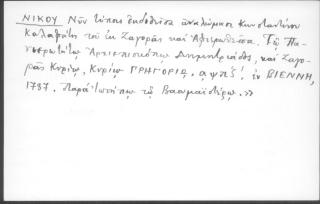 ΝΙΚΟΥ Νῦν τύποις ἐκδοθεῖσα ἀναλώμασι Κωνσταντίνου
Καλαφάτη τοῦ ἐκ Ζαγορᾶς καὶ Ἀφιερωθεῖσα. Τῷ Πα-
νιερωτάτῳ Ἀρχιεπισκόπῳ Δημητριάδος, καὶ Ζαγο-
ρᾶς Κυρίῳ, Κυρίῳ ΓΡΗΓΟΡΙῼ, αψπζ΄, ἐν ΒΙΕΝΝΗ,
1787. Παρὰ τῷ Βαουμαϊστέρῳ. »